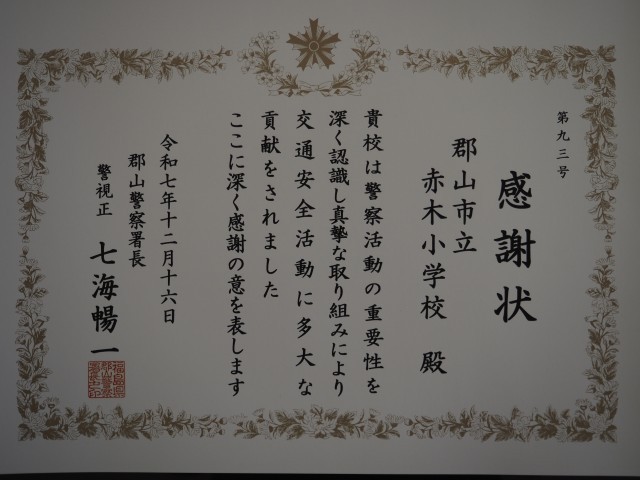 第九三号
感謝状
郡山市立
赤木小学校 殿
貴校は警察活動の重要性を
深く認識し真摯な取り組みにより
交通安全活動に多大な
貢献をされました
ここに深く感謝の意を表します
令和七年十二月十六日
郡山警察署長
警視正 七海暢一
福島県
郡山警察
署長之印